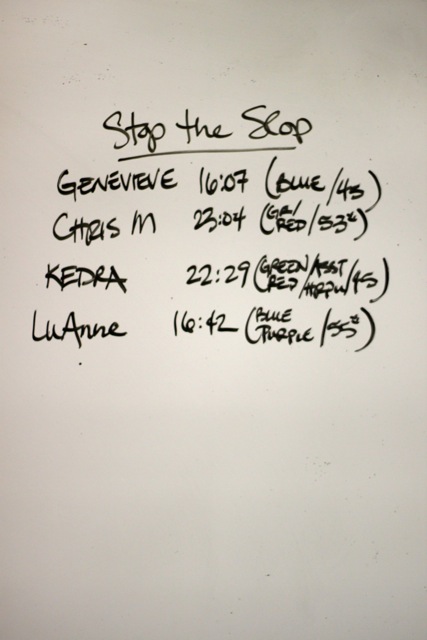 Stop the Slop
GENEVIEVE 16:07 (BLUE/45)
CHRIS M 23:04 (GR/RED/53#)
KEDRA 22:29 (GREEN/ASST RED/HRPW/45)
LuAnne 16:42 (BLUE PURPLE/55#)